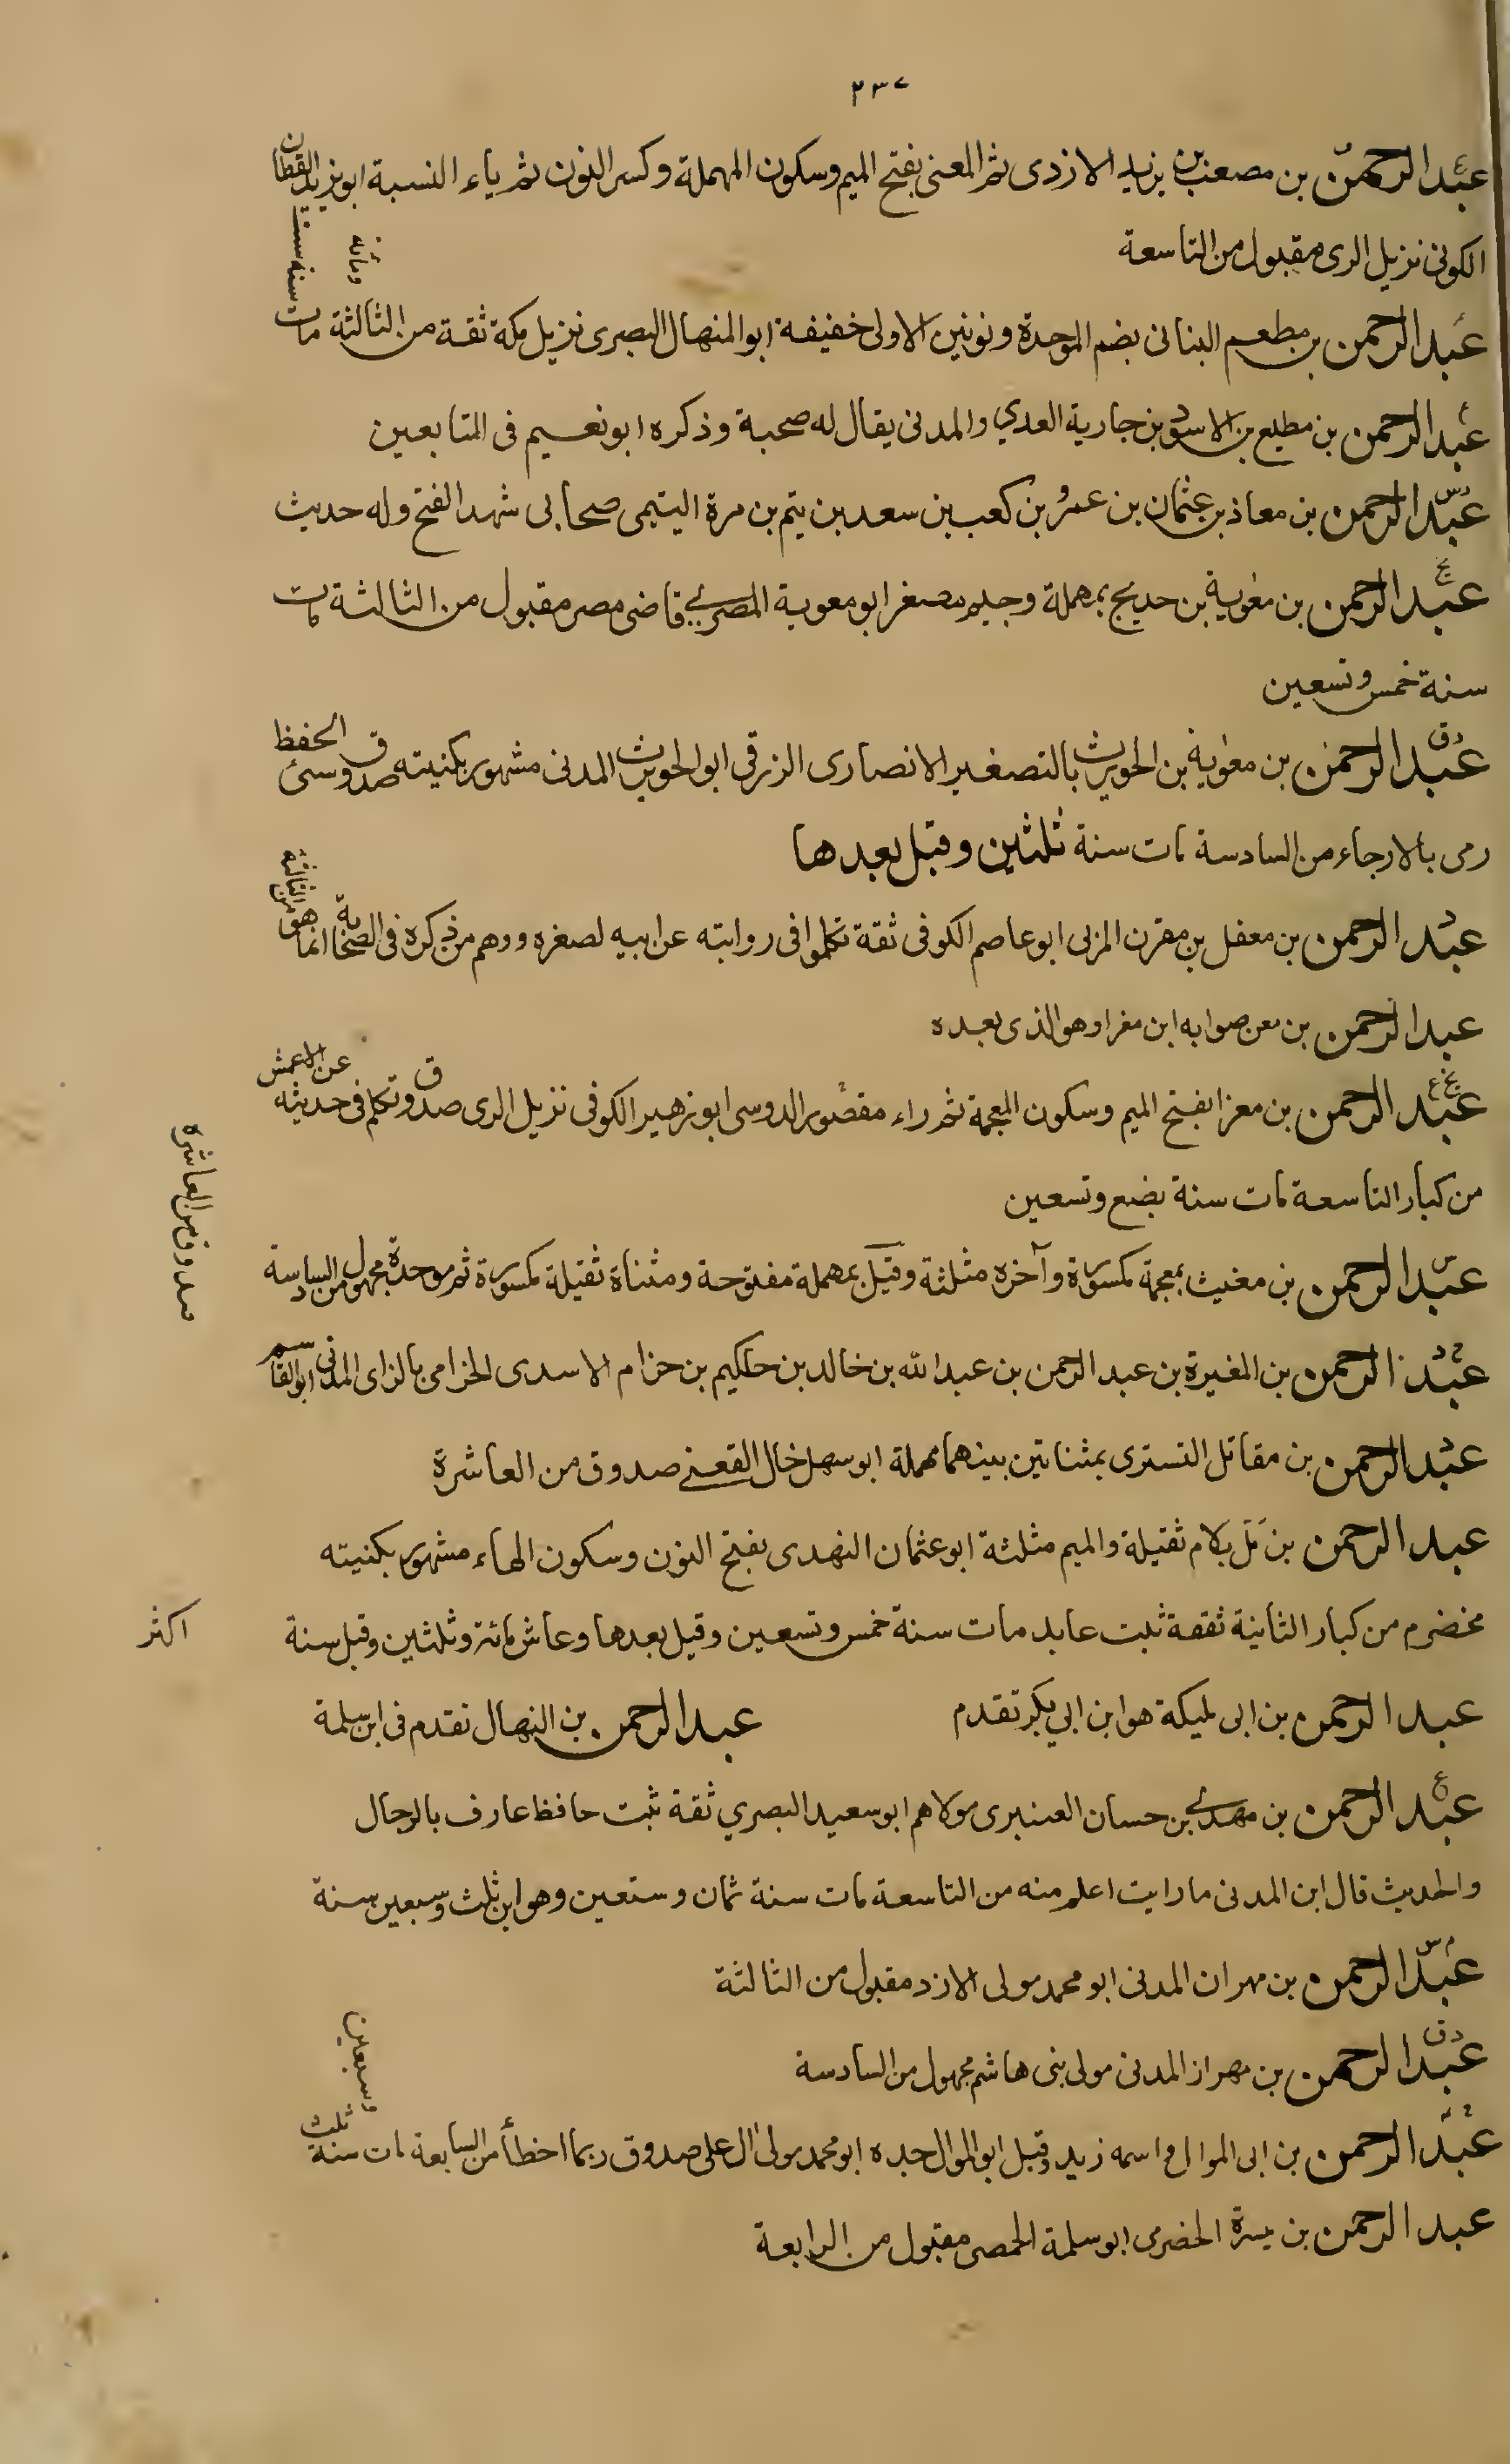 ٢٣٧
عبد الرحمن بن مصعب بن يزيد الازدى ثم المعنى بفتح الميم وسكون المهملة وكسر النون ثم ياء النسبة ابو يزيد القطان
الكوفى نزيل الرى مقبول من التاسعة
عبد الرحمن بن مطعم البنانى بضم الموحدة ونونين الاولى خفيفة ابو المنهال البصرى نزيل مكة ثقة من الثالثة مات سنة ست ومائة
عبد الرحمن بن مطيع بن الاسود بن جارية العدوي المدنى يقال له صحبة وذكره ابو نعيم فى التابعين
عبد الرحمن بن معاذ بن عثمان بن عمرو بن كعب بن سعد بن تيم بن مرة التيمى صحابى شهد الفتح وله حديث
عبد الرحمن بن معوية بن حديج بمهملة وجيم مصغر ابو معوية المصري قاضى مصر مقبول من الثالثة مات
سنة خمس وتسعين
عبد الرحمن بن معوية بن الحويرث بالتصغير الانصارى الزرقى ابو الحويرث المدنى مشهور بكنيته صدوق سئ الحفظ
رمى بالارجاء من السادسة مات سنة ثلثين وقيل بعدها
عبد الرحمن بن معقل بن مقرن المزنى ابو عاصم الكوفى ثقة تكلموا فى روايته عن ابيه لصغره ووهم من ذكره فى الصحابة انما هو من الثالثة
عبد الرحمن بن معن صوابه ابن مغرا وهو الذى بعده
عبد الرحمن بن مغرا بفتح الميم وسكون المعجمة ثم راء مقصور الدوسى ابو زهير الكوفى نزيل الرى صدوق تكلم فى حديثه عن الاعمش
من كبار التاسعة مات سنة بضع وتسعين
عبد الرحمن بن مغيث بمعجمة مكسورة وآخره مثلثة وقيل بمهملة مفتوحة ومثناة ثقيلة مكسورة ثم موحدة مجهول من السادسة
عبد الرحمن بن المغيرة بن عبد الرحمن بن عبد الله بن خالد بن حكيم بن حزام الاسدى الحزامى بالزاى المدنى ابو القاسم
صدوق من العاشرة
عبد الرحمن بن مقاتل التسترى بمثناتين بينهما مهملة ابو سهل خال القعنبي صدوق من العاشرة
عبد الرحمن بن مَل بلام ثقيلة والميم مثلثة ابو عثمان النهدى بفتح النون وسكون الهاء مشهور بكنيته
مخضرم من كبار الثانية ثقة ثبت عابد مات سنة خمس وتسعين وقيل بعدها وعاش مائة وثلثين وقيل سنة
اكثر
عبد الرحمن بن ابى مليكة هو ابن ابى بكر تقدم عبد الرحمن بن النهال تقدم فى ابن سلمة
عبد الرحمن بن مهدي بن حسان العنبرى مولاهم ابو سعيد البصري ثقة ثبت حافظ عارف بالرجال
والحديث قال ابن المدنى ما رايت اعلم منه من التاسعة مات سنة ثمان وستعين وهو ابن ثلث وسبعين سنة
عبد الرحمن بن مهران المدنى ابو محمد مولى الازد مقبول من الثالثة
عبد الرحمن بن مهران المدنى مولى بنى هاشم مجهول من السادسة
عبد الرحمن بن ابى الموال واسمه زيد وقيل ابو الموال جده ابو محمد مولى آل على صدوق ربما اخطأ من السابعة مات سنة ثلث وسبعين
عبد الرحمن بن ميسرة الحضرمى ابو سلمة الحمصى مقبول من الرابعة